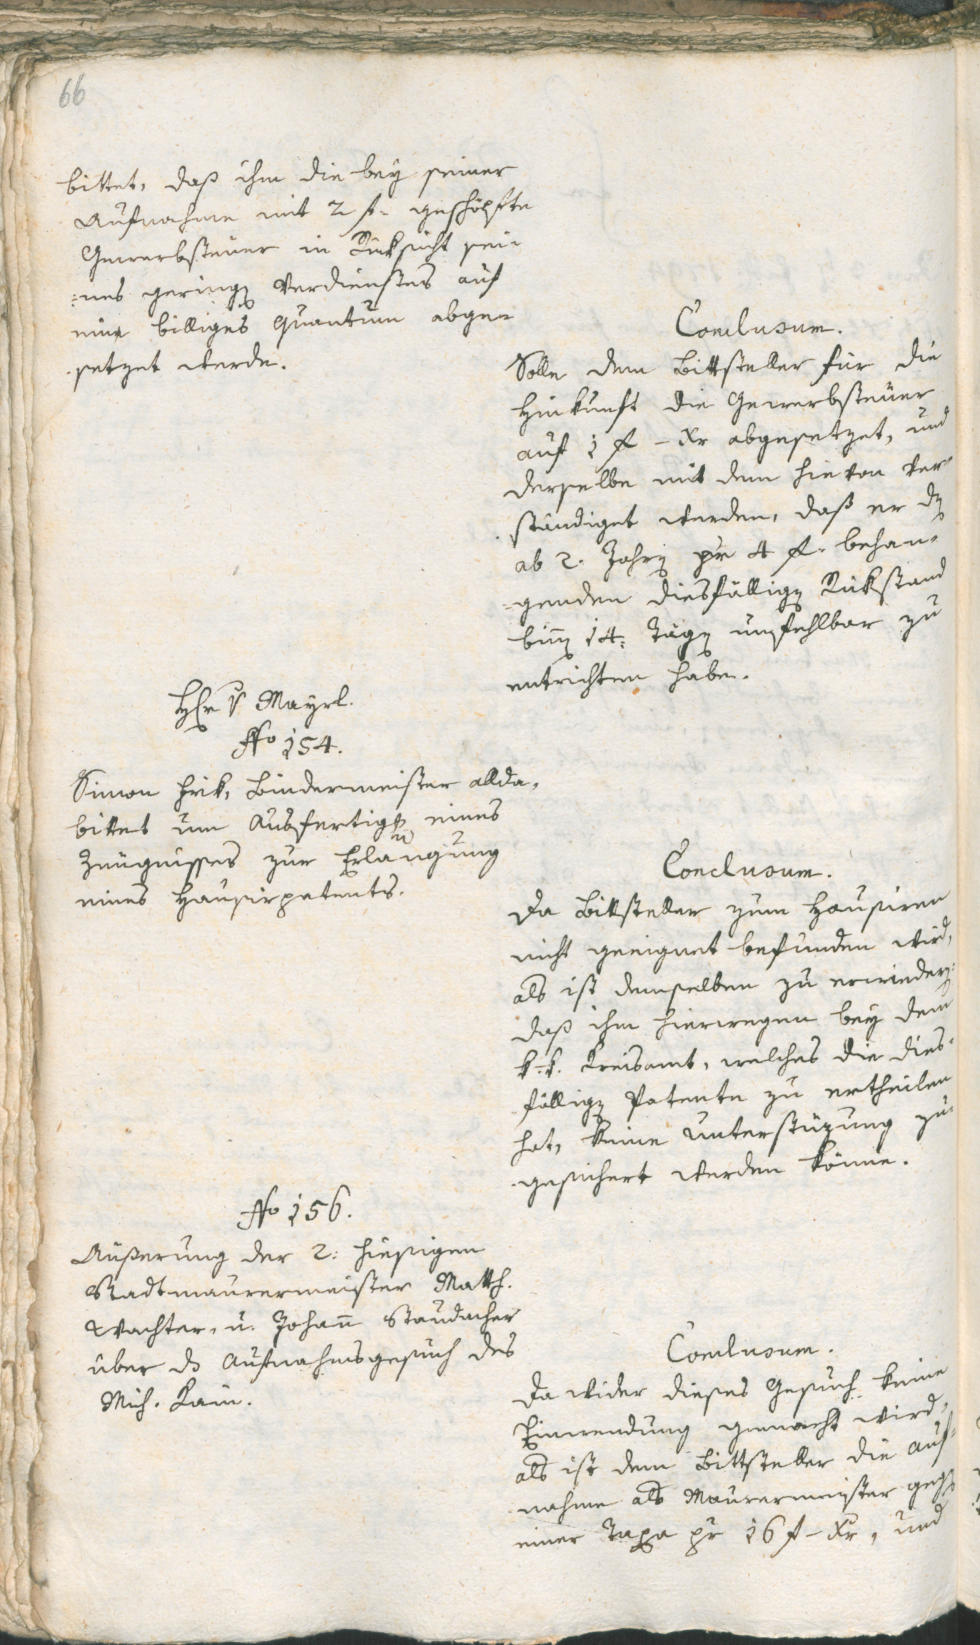 66
bittet, daß ihm die bey seiner
Aufnahme mit 2 f. geschöpfte
Gewerbsteuer in Rüksicht sei-
=nes geringen Verdienstes auf
eine billiges Quantum abge-
setzet werde.
Conclusum.
Solle dem Bittsteller für die
Hinkunft die Gewerbsteuer
auf 1 f – Xr abgesetzet, und
derselbe mit dem hievon ver-
ständiget werden, daß er den
ab 2. Jahren pr 4 f. behan-
=genden diesfälligen Rükstand
binnen 14. Tägen unfehlbar zu
entrichten habe.
Hr v Mayrl.
No 154.
Simon Hrik, Bindermeister allda,
bittet um Ausfertigung eines
Zeugnisses zur Erlangung
eines Hausirpatents.
Conclusum.
Da Bittsteller zum Hausiren
nicht geeignet befunden wird,
als ist demselben zu erwiedern:
daß ihm hierwegen bey dem
k. k. Kreisamt, welches die dies-
fälligen Patente zu ertheilen
hat, keine Unterstüzung zu-
gesichert werden könne.
No 156.
Äußerung der 2. hiesigen
Stadtmaurermeister Matth.
Wachter, u. Johann Staudacher
über das Aufnahmsgesuch des
Mich. Kain.
Conclusum.
Da wider dieses Gesuch keine
Einwendung gemacht wird,
als ist dem Bittsteller die Auf-
nahme als Maurermeister gegen
einer Taxa pr 16 f – Xr, und